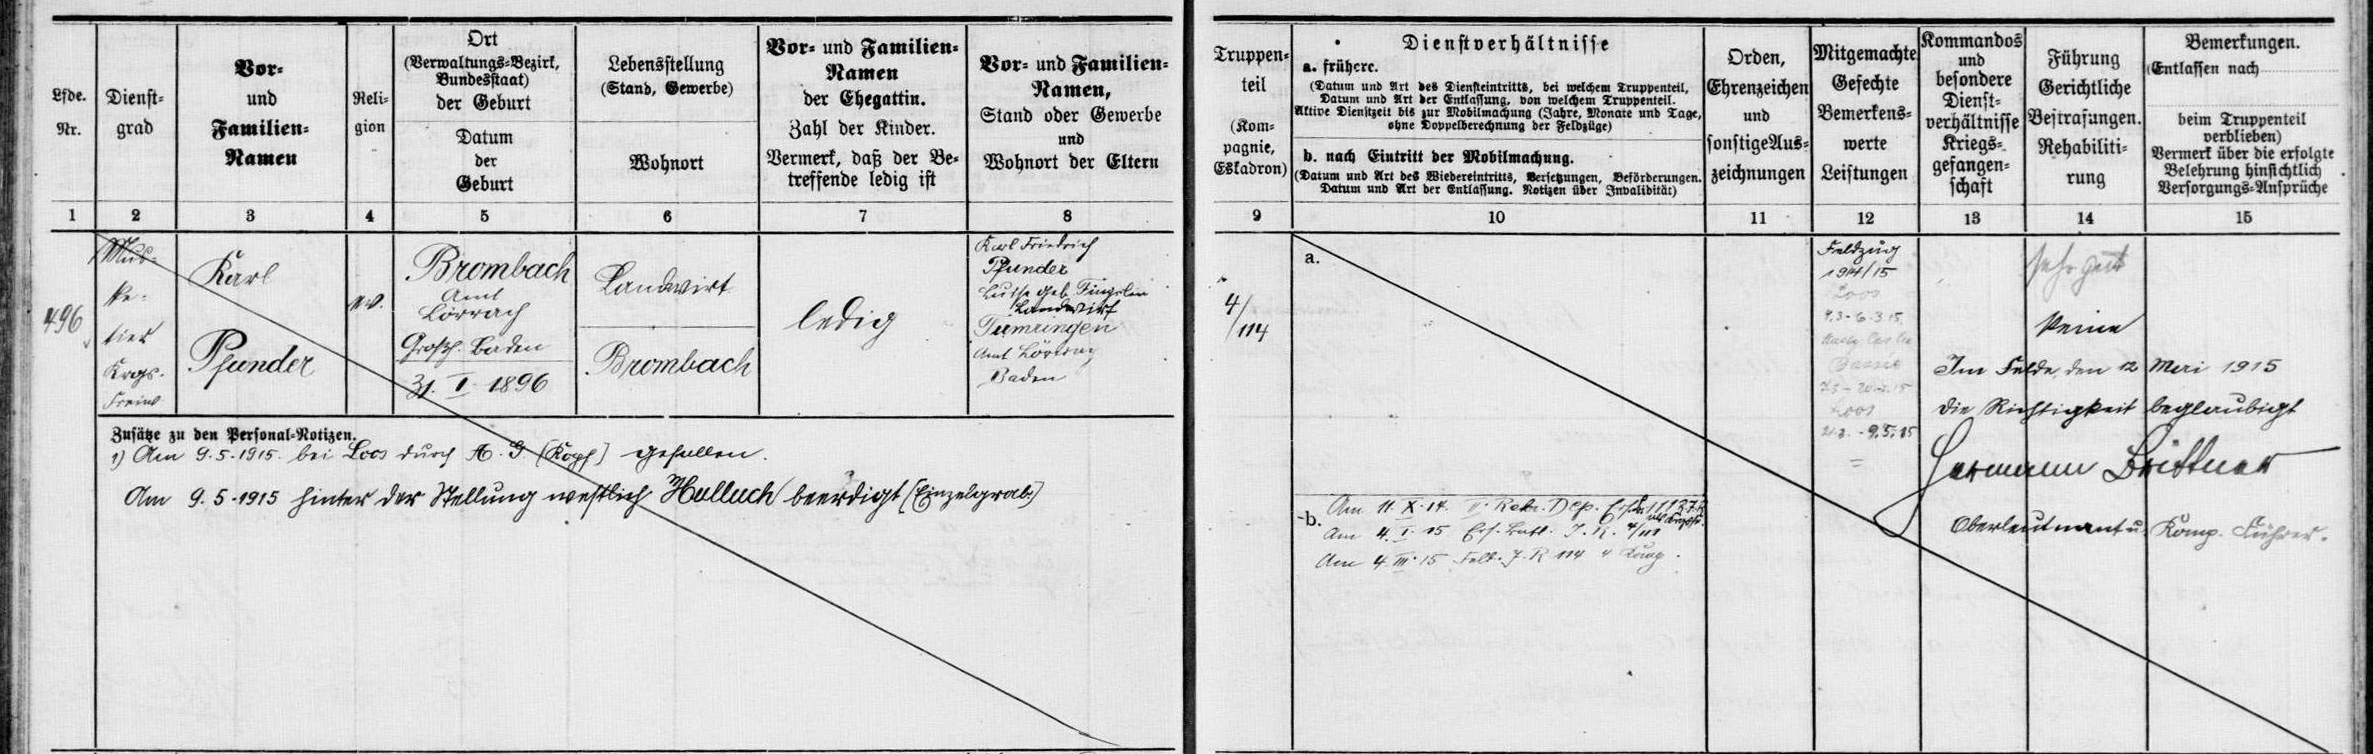 Lfde.
Nr.
Dienst-
grad
Vor-
und
Familien-
Namen
Reli-
gion
Ort
(Verwaltungs-Bezirk,
Bundesstaat)
der Geburt
Datum
der
Geburt
Lebensstellung
(Stand, Gewerbe)
Wohnort
Vor- und Familien-
Namen
der Ehegattin.
Zahl der Kinder.
Vermerk, daß der Be-
treffende ledig ist
Vor- und Familien-
Namen,
Stand oder Gewerbe
und
Wohnort der Eltern
1 2 3 4 5 6 7 8
496
Mus-
ke-
tier
Krgs.
Freiw
Karl
Pfunder
ev.
Brombach
Amt
Lörrach
Großh. Baden
31. I. 1896
Landwirt
Brombach
ledig
Karl Friedrich
Pfunder
geb.
Landwirt
Tumringen
Amt Lörrach
Baden
Zusätze zu den Personal-Notizen.
1) Am 9.5.1915. bei Loos durch A. G. [Kopf] gefallen.
Am 9.5.1915 hinter der Stellung westlich Hulluch beerdigt [Einzelgrab]
Truppen-
teil
(Kom-
pagnie,
Eskadron)
Dienstverhältnisse
a. frühere.
(Datum und Art des Diensteintritts, bei welchem Truppenteil,
Datum und Art der Entlassung, von welchem Truppenteil.
Aktive Dienstzeit bis zur Mobilmachung (Jahre, Monate und Tage,
ohne Doppelberechnung der Feldzüge)
b. nach Eintritt der Mobilmachung.
(Datum und Art des Wiedereintritts, Versetzungen, Beförderungen.
Datum und Art der Entlassung. Notizen über Invalidität)
Orden,
Ehrenzeichen
und
sonstige Aus-
zeichnungen
Mitgemachte
Gefechte
Bemerkens-
werte
Leistungen
Kommandos
und
besondere
Dienst-
verhältnisse
Kriegs-
gefangen-
schaft
Führung
Gerichtliche
Bestrafungen.
Rehabiliti-
rung
Bemerkungen.
(Entlassen nach
beim Truppenteil
verblieben)
Vermerk über die erfolgte
Belehrung hinsichtlich
Versorgungs-Ansprüche
9 10 11 12 13 14 15
4/
/114
a.
-b.
Am 11. X. 14. II. Rekr. Dep.
Am 4. I. 15 Ers. Batl. I. R.
Am 4. III. 15 Feld. I. R 114 4 Komp.
Feldzug
1914/15
Loos
4.3-6.3.15.
Bassée
7.3-20.3.15
Loos
21.3.-9.5.15
sehr gut
keine
Im Felde, den 12 Mai 1915
Die Richtigkeit beglaubigt
Hermann Brüttner
Oberleutnant u. Komp. Führer.